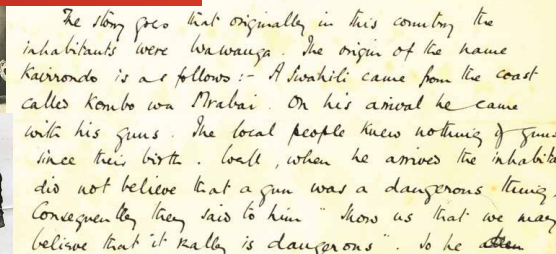 The story goes that originally in this country the
inhabitants were Wawanga. The origin of the name
Kavirondo is as follows:- A Swahili came from the coast
called Kombo wa Mrabai. On his arival he came
with his guns. The local people knew nothing of guns
since their birth. Well, when he arrived the inhabita
did not believe that a gun was a dangerous thing.
Consequently they said to him "Show us that we may
believe that it really is dangerous". So he